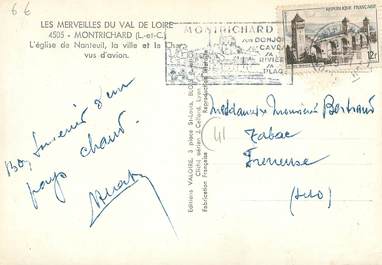 66
LES MERVEILLES DU VAL DE LOIRE
4505 - MONTRICHARD (L.-et-C.)
L'église de Nanteuil, la ville et le Cher
vus d'avion.
MONTRICHARD
SON DONJON
SES CAVES
SA RIVIÈRE
SA PLAGE
RÉPUBLIQUE FRANÇAISE
12F
Bon souvenir d'un
pays chaud.
Editions VALOIRE, 3 place St-Louis, BLOIS
Cliché aérien J. Cellard, Lyon
Fabrication Française
Reproduction
Mesdames Monsieur Bertrand
41
Tabac
Freneuse